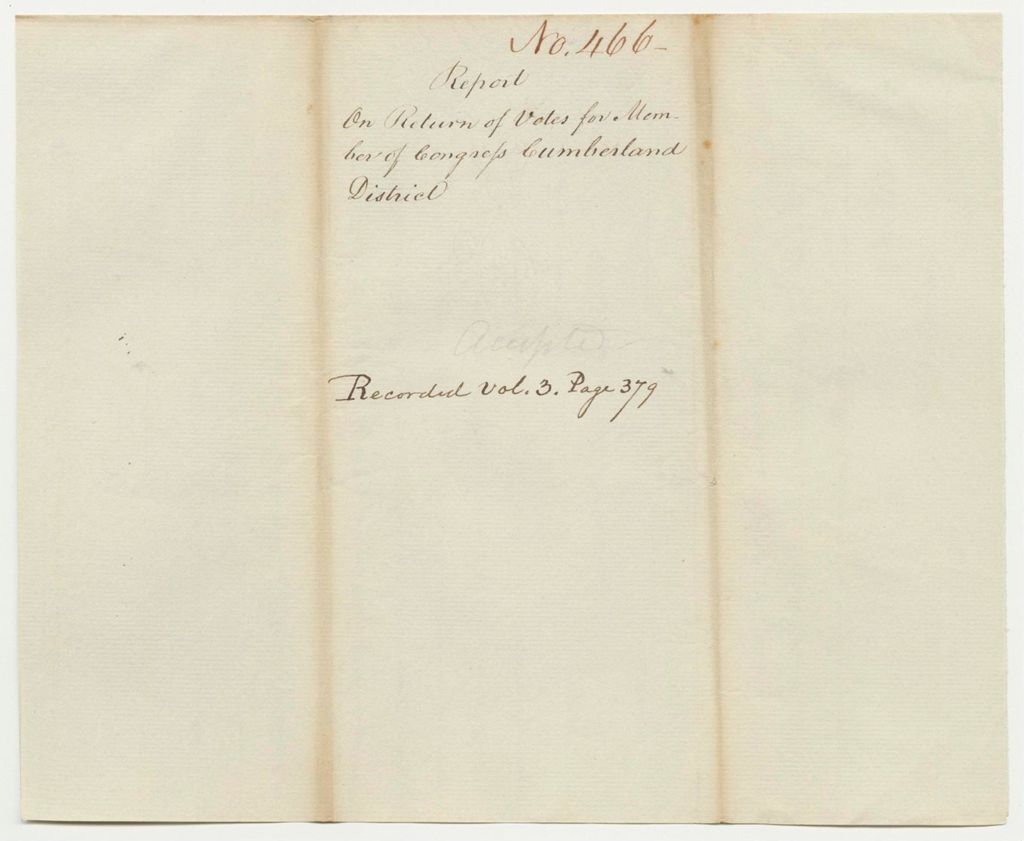 No. 466-
Report
On Return of Votes for Mem-
ber of Congress Cumberland
District
Accepted
Recorded Vol. 3. Page 379